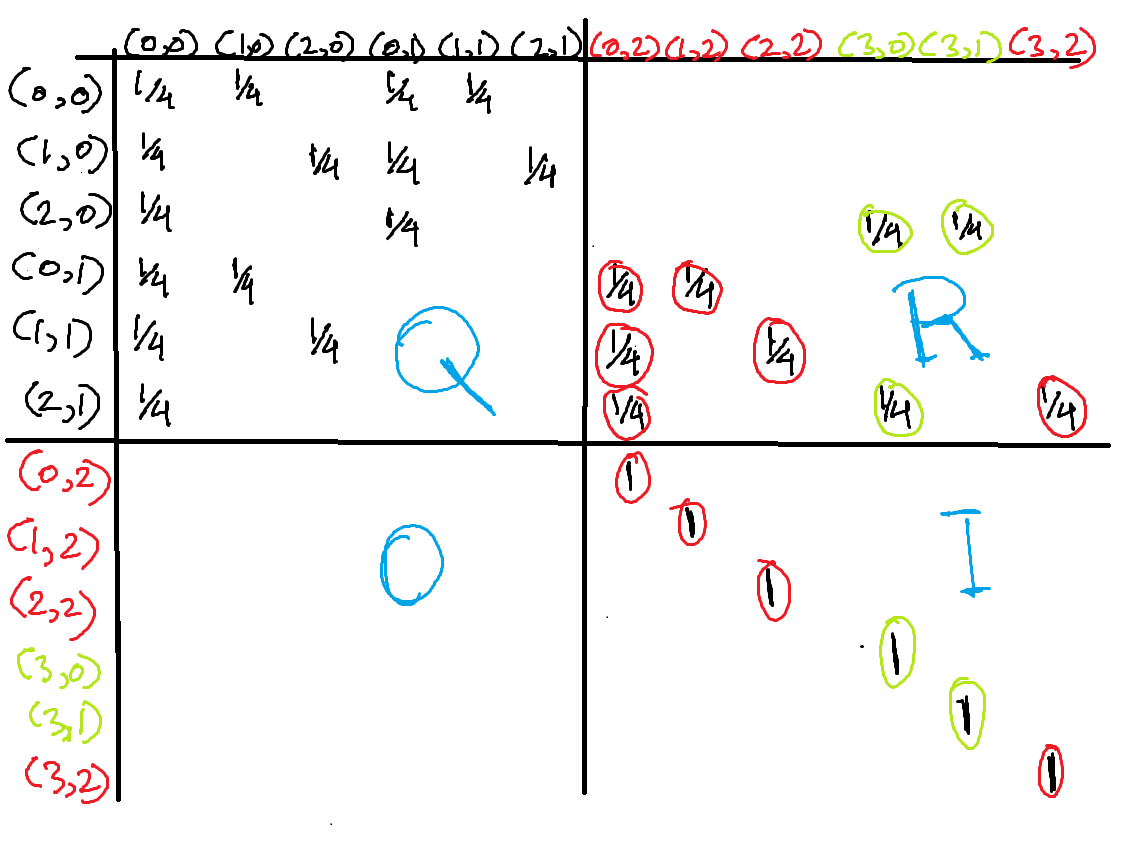 (0,0) (1,0) (2,0) (0,1) (1,1) (2,1) (0,2) (1,2) (2,2) (3,0) (3,1) (3,2)
(0,0) 1/4 1/4 1/4 1/4
(1,0) 1/4 1/4 1/4 1/4
(2,0) 1/4 1/4 1/4 1/4
(0,1) 1/4 1/4 1/4 1/4
(1,1) 1/4 1/4 Q 1/4 1/4 R
(2,1) 1/4 1/4 1/4 1/4
(0,2) 1
(1,2) O 1 I
(2,2) 1
(3,0) 1
(3,1) 1
(3,2) 1